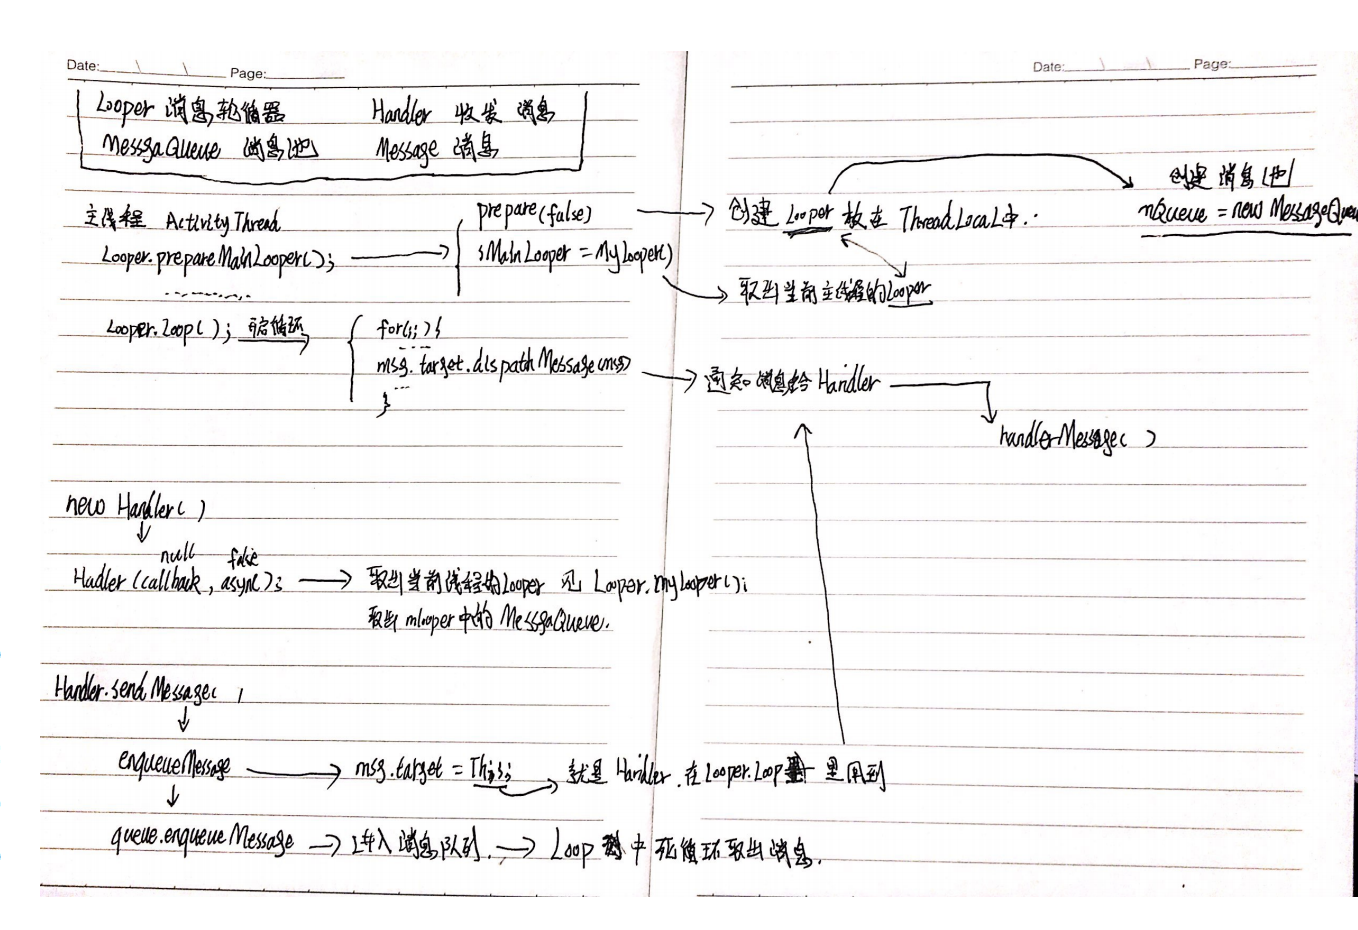 Date: \ \ Page:
Date: \ \ Page:
Looper 消息轮循器 Handler 收发 消息
MessgaQueue 消息池 Message 消息
主线程 ActivityThread
Looper.prepareMainLooper();
............
prepare(false)
sMainLooper = MyLooper()
创建 Looper 放在 ThreadLocaL中.
创建 消息池
mQueue = new MessageQueu
取出当前主线程的Looper
Looper.Loop(); 开启循环
for(;;){
...
msg.target.dispathMessage(msg)
...
}
通知消息给 Handler
handlerMessage( )
new Handler( )
null false
Hadler(callback, async);
取出当前线程的Looper 见 Looper.myLooper();
取出 mlooper中的 MessgaQueue.
Handler.sendMessage( )
enqueueMessage
msg.target = This;
就是 Handler.在Looper.Loop 里用到
queue.enqueueMessage
进入消息队列.
Loop 中 死循环取出消息.